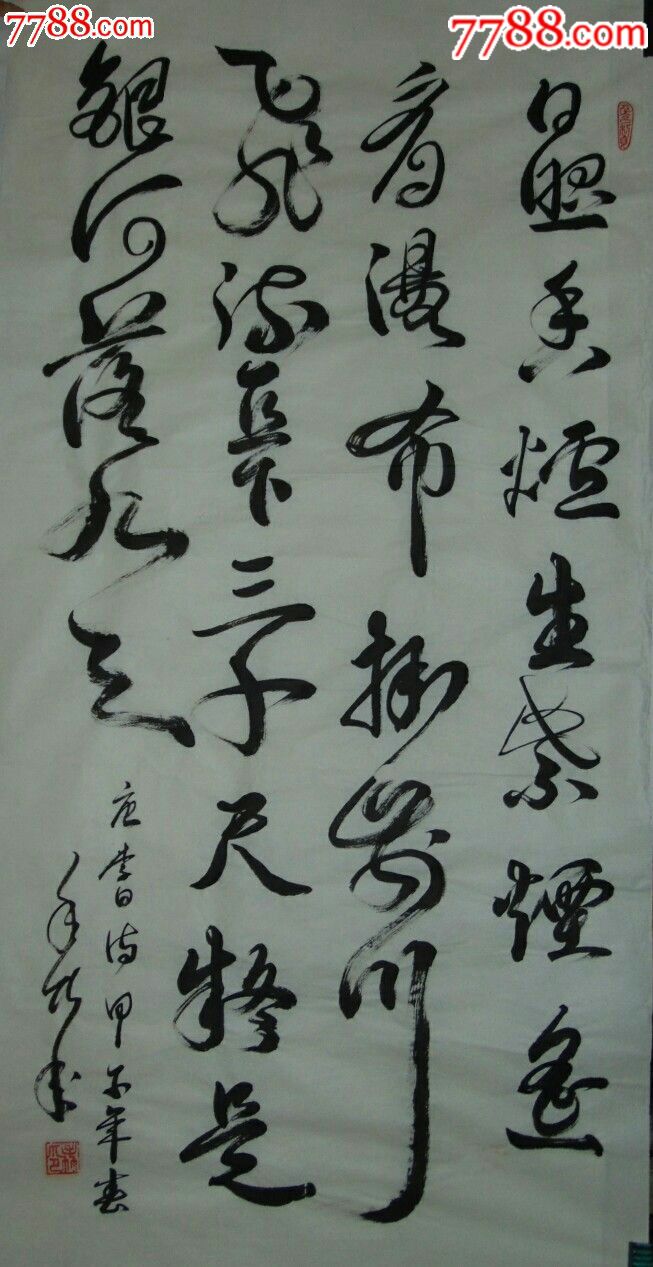 7788.com
7788.com
日照香爐生紫煙遙
看瀑布掛前川
飛流直下三千尺疑是
銀河落九天
唐李白诗甲午年春